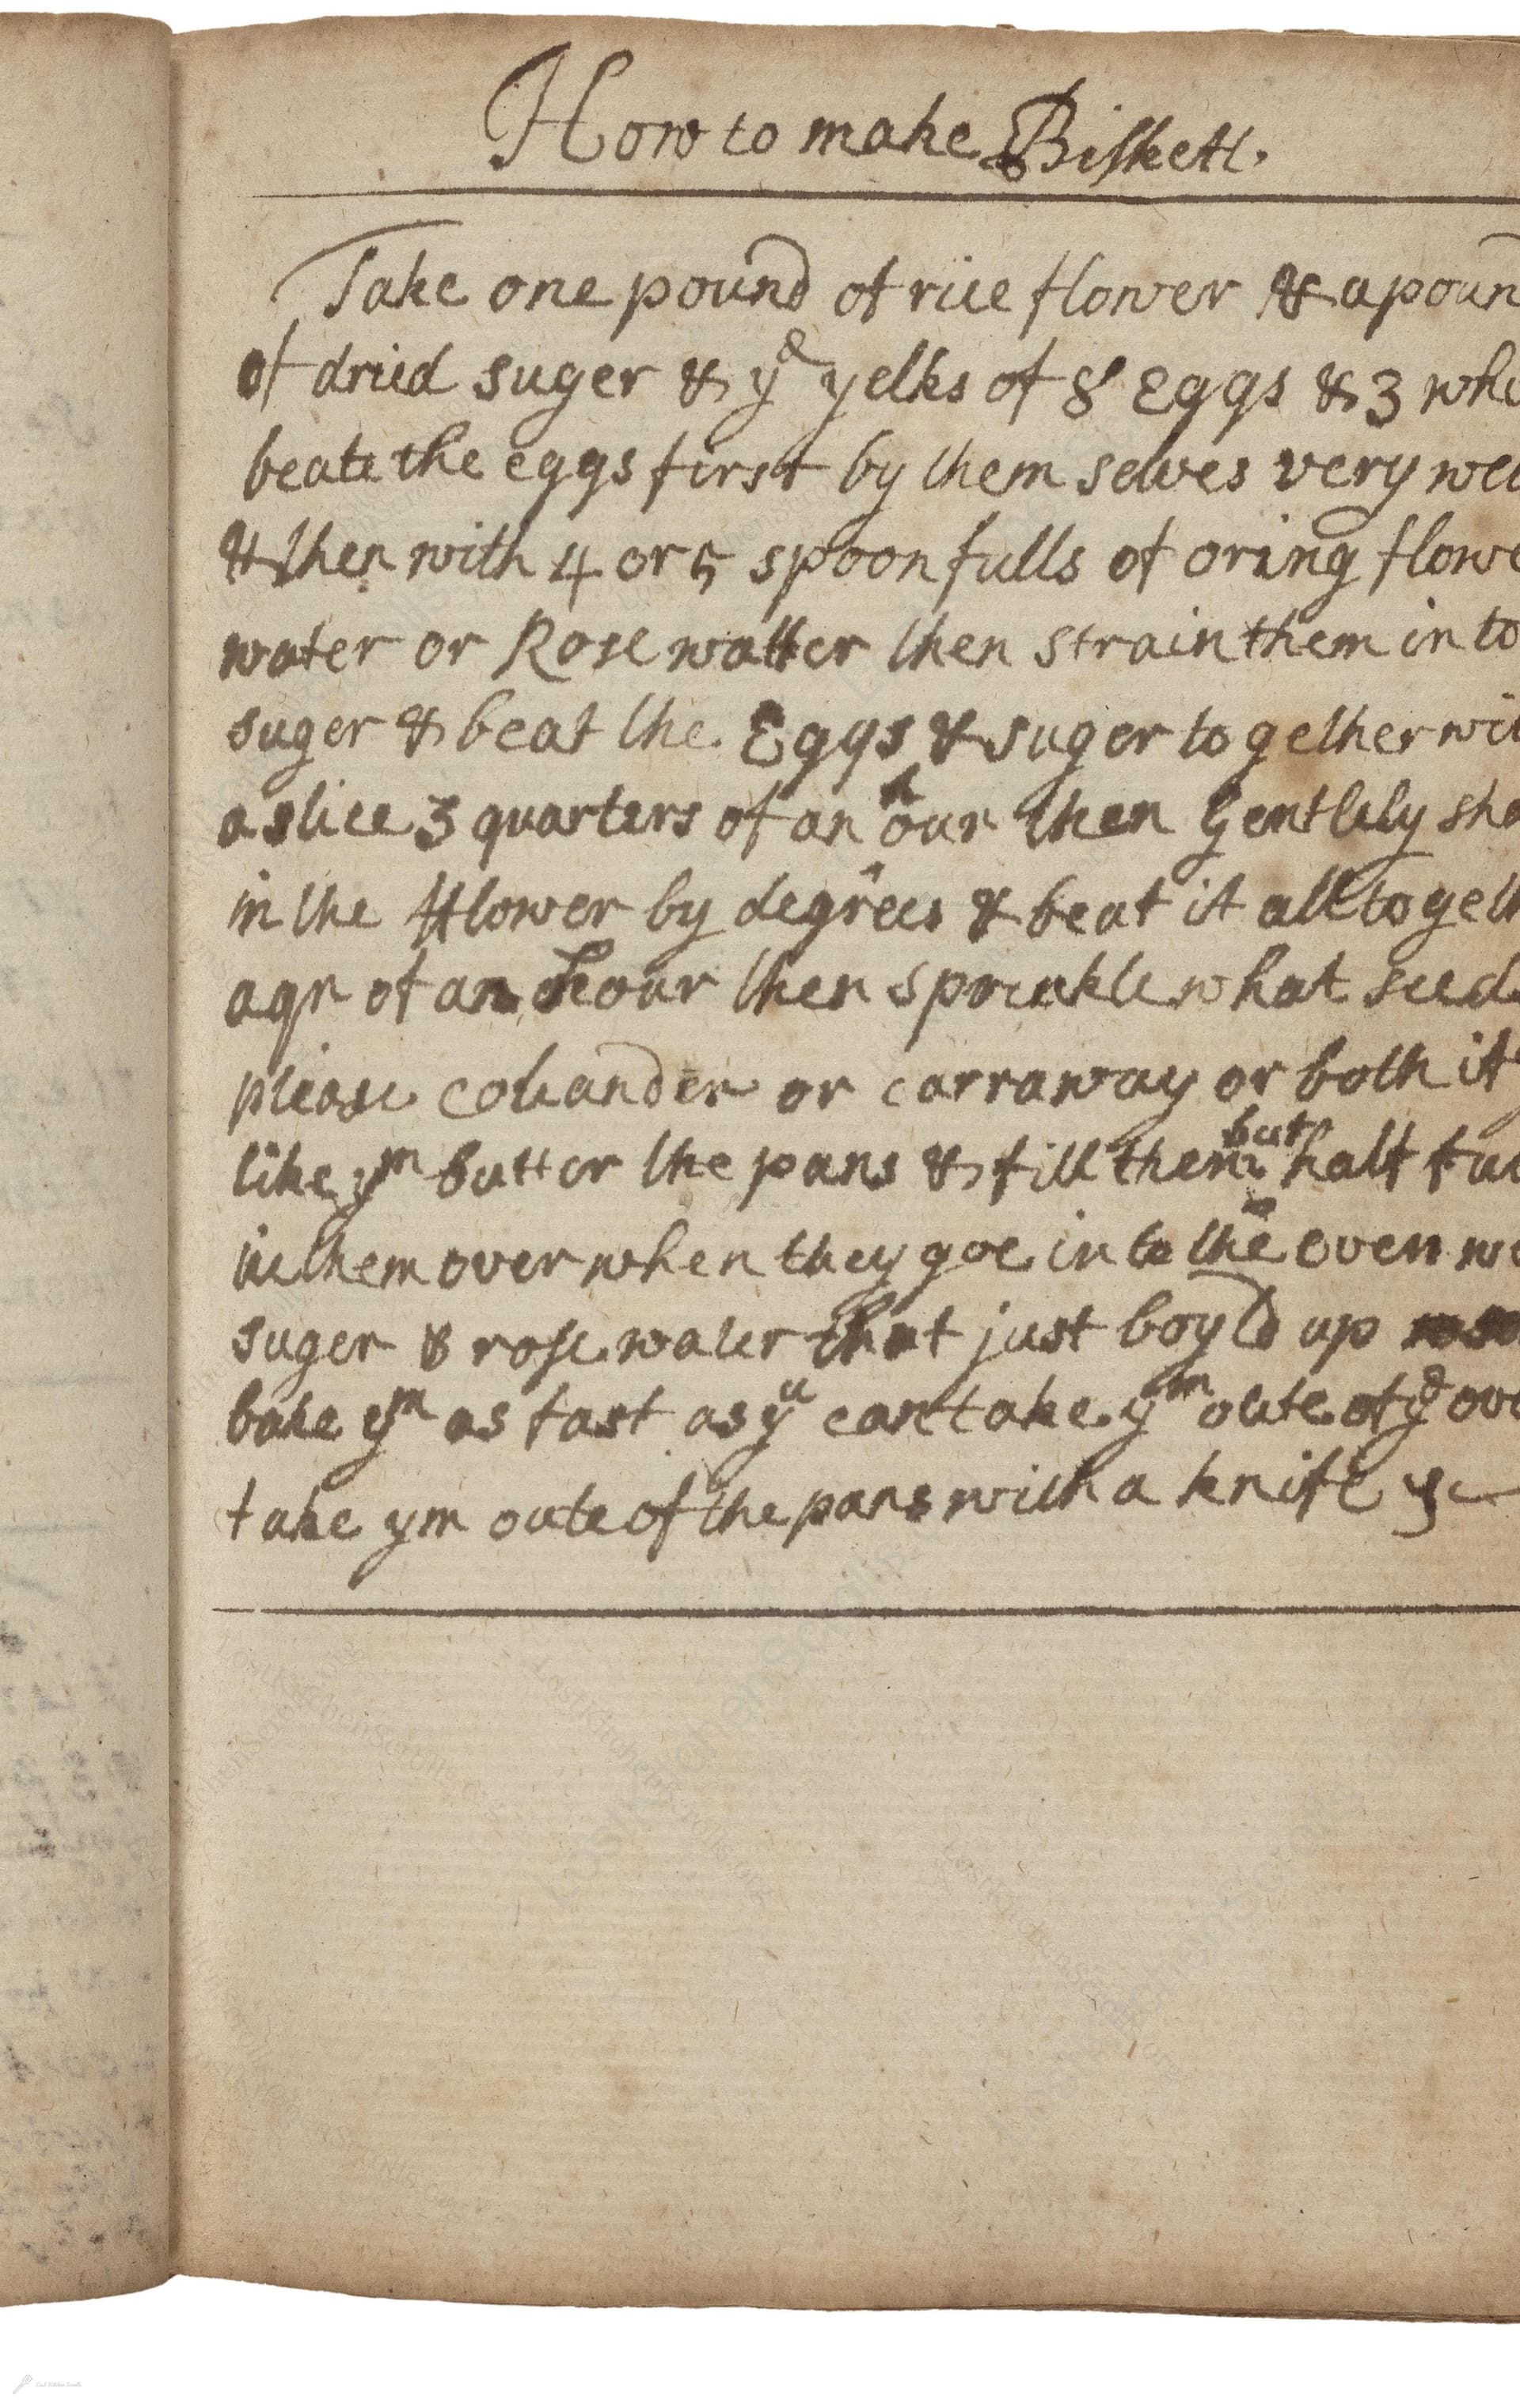 How to make Biskett.
Take one pound of rice flower & a poun
of dried suger & ye yelks of 8 Eggs & 3 whi
beate the eggs first by them selves very wel
& then with 4 or 5 spoonfulls of oring flowe
water or Rose watter then strain them in to
suger & beat the Eggs & suger to gether wit
a slice 3 quarters of an hour then Gentlely sha
in the fflower by degrees & beat it all togeth
a qr of an hour then sprinkle what seeds
please coliander or carraway or both if
like ym butter the pans & fill them but half ful
ice them over when they goe in to the oven
suger & rose water that just boyld up
bake ym as fast as yu can take ym oute of ye ove
take ym oute of the pans with a knife &c